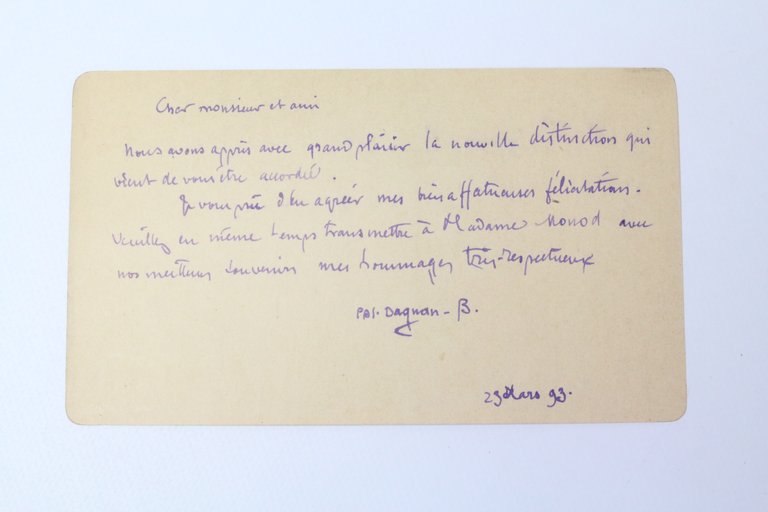 Cher monsieur et ami
Nous avons appris avec grand plaisir la nouvelle distinction qui
vient de vous être accordée.
Je vous prie d'en agréer mes bien affectueuses félicitations.
Veuillez en même temps transmettre à Madame Monod avec
nos meilleurs souvenirs mes hommages très-respectueux
PAJ. Dagnan-B.
23 Mars 93.